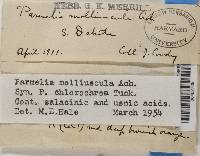 HERB. G. K. MERRILL
Parmelia molliuscula Ach.
S. Dakota
April 1911. Coll. J.
HARVARD
UNIVERSITY
Parmelia molliuscula Ach.
Syn. P. chlorochroa Tuck.
Cont. salacinic and usnic acids.
Det. M.E.Hale March 1954
and deep brown orange